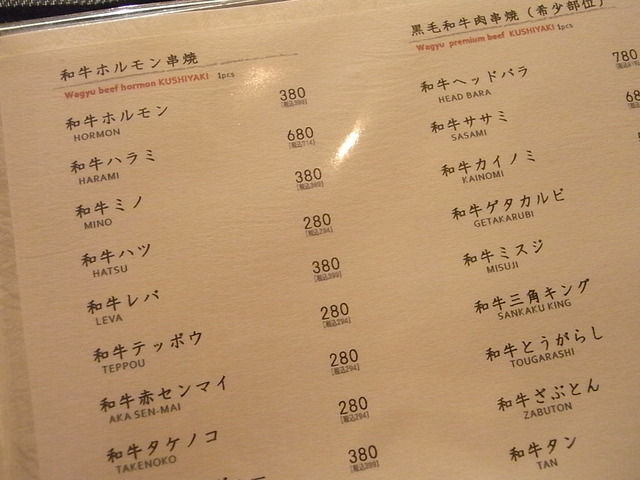 和牛ホルモン串焼
Wagyu beef hormon KUSHIYAKI 1pcs
和牛ホルモン 380
HORMON [税込399]
和牛ハラミ 680
HARAMI [税込714]
和牛ミノ 380
MINO [税込399]
和牛ハツ 280
HATSU [税込294]
和牛レバ 380
LEVA [税込399]
和牛テッポウ 280
TEPPOU [税込294]
和牛赤センマイ 280
AKA SEN-MAI [税込294]
和牛タケノコ 280
TAKENOKO [税込294]
380
[税込399]
黒毛和牛肉串焼(希少部位)
Wagyu premium beef KUSHIYAKI 1pcs
和牛ヘッドバラ 780
HEAD BARA
和牛ササミ
SASAMI
和牛カイノミ
KAINOMI
和牛ゲタカルビ
GETAKARUBI
和牛ミスジ
MISUJI
和牛三角キング
SANKAKU KING
和牛とうがらし
TOUGARASHI
和牛ざぶとん
ZABUTON
和牛タン
TAN